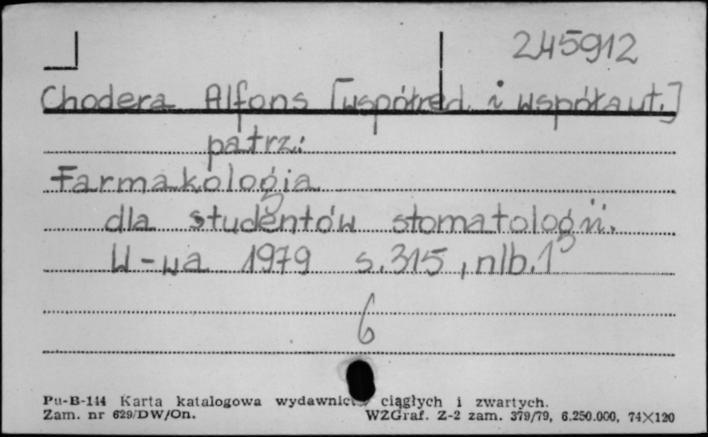 245912
Chodera Alfons [współred. i współaut.]
patrz:
Farmakologia
dla studentów stomatologii.
W-wa 1979 s. 315, nlb. 1
6
Pu-B-144 Karta katalogowa ciągłych i zwartych.
Zam. nr 629/DW/On. WZGraf. Z-2 zam. 379/79, 6.250.000, 74×120